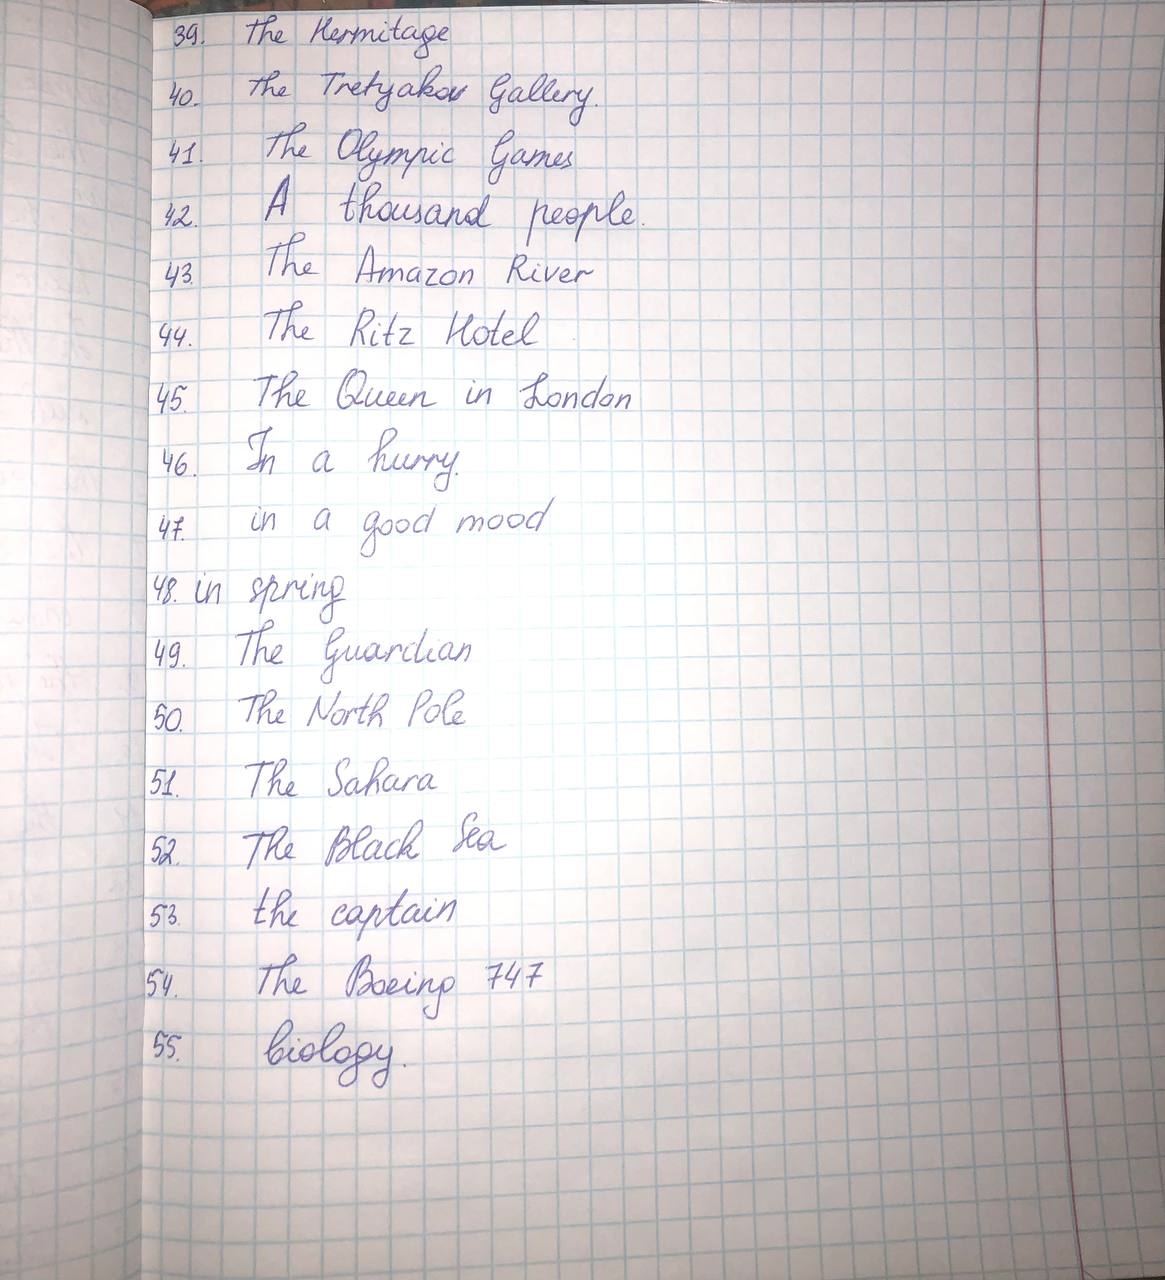 39. The Hermitage
40. the Tretyakov Gallery.
41. The Olympic Games
42. A thousand people.
43. The Amazon River
44. The Ritz Hotel
45. The Queen in London
46. In a hurry.
47. in a good mood
48. in spring
49. The Guardian
50. The North Pole
51. The Sahara
52. The Black Sea
53. the captain
54. The Boeing 747
55. biology.